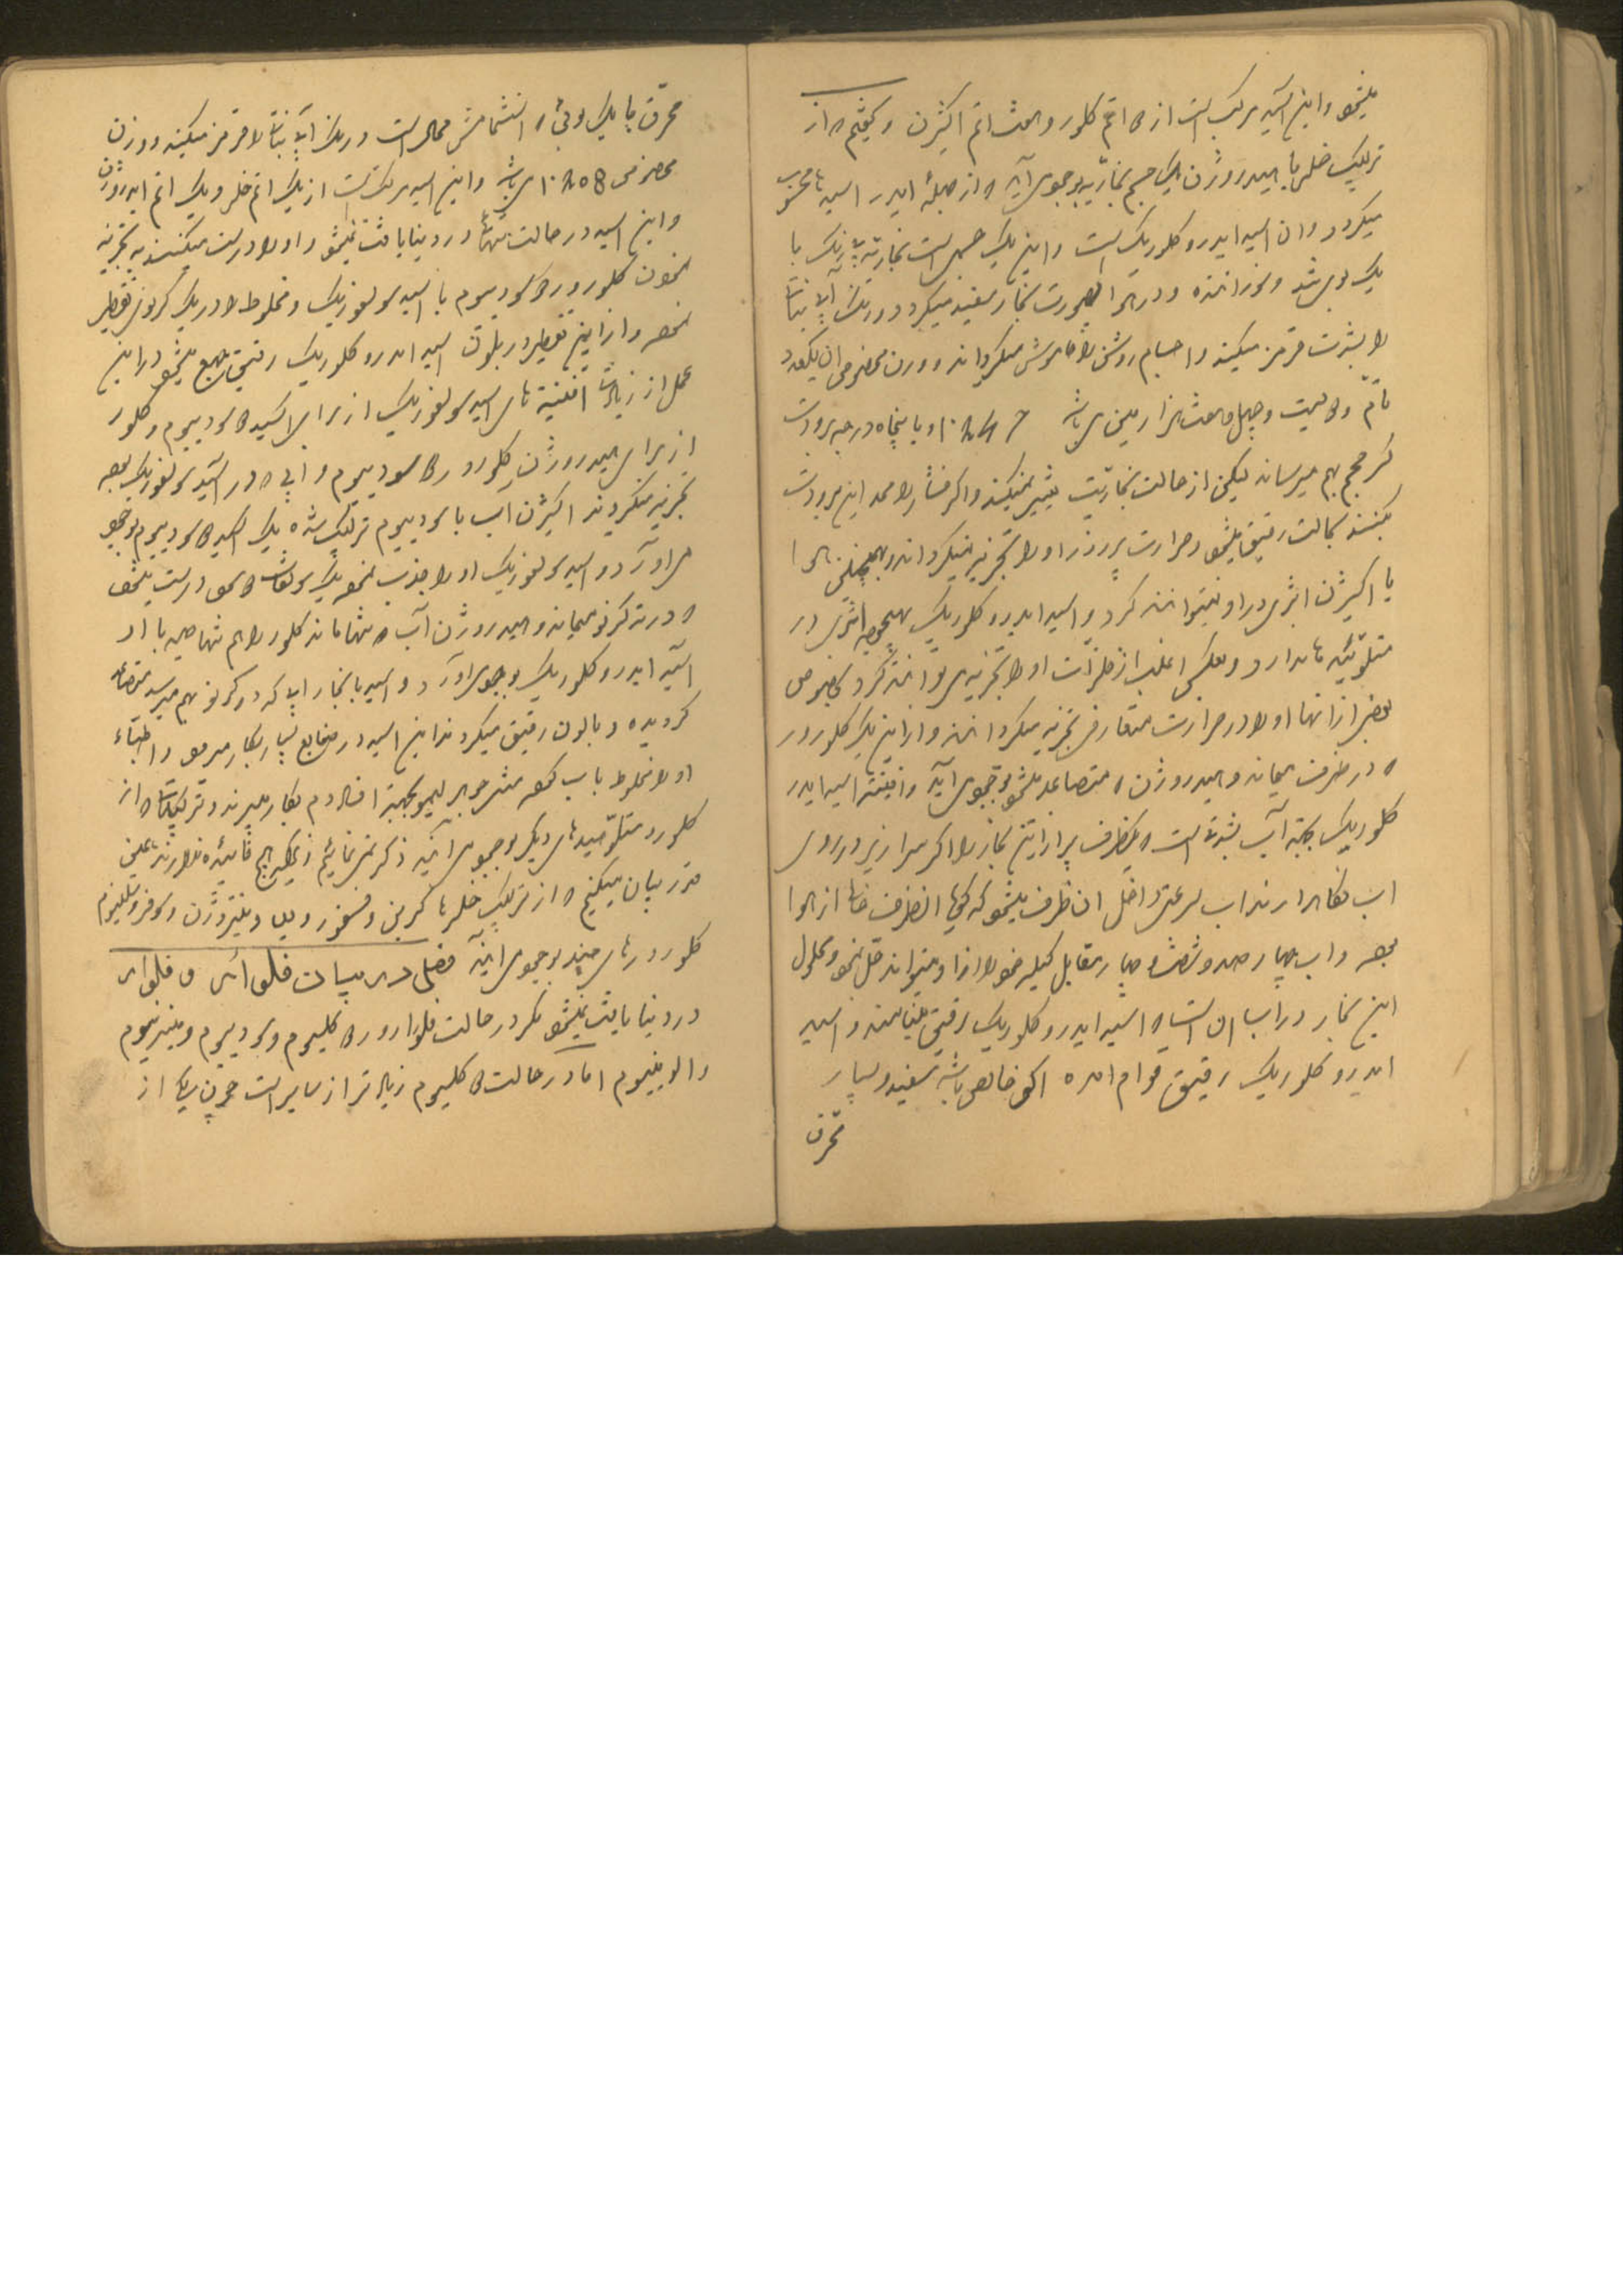 میشود و این اسید مرکب است از دو اتم کلور و هفت اتم اکیژن و گفتیم که از
ترکیب خلر با هیدروژن یک جسم بخاریه بوجود می‌آید که از جمله ایدر اسیدها محسوب
میگردد و ان اسید ایدروکلوریک است و این یک جسمی است بخاریه بی رنگ با
یک بوی تند و سوزاننده و در هوا بصورت بخار سفید میگردد و رنگ آبی نباتات
را بشدت قرمز میکند و اجسام روشن را خاموش میگرداند و وزن مخصوص ان یکعدد
تامّ و دویست و چهل و هفت هزارمین می باشد ۱۲۴۷ و با پنجاه درجه برودت
کم حجم بهم میرساند لیکن از حالت بخاریت تغییر نمیکند و اگر فشار را ممد این برودت
بکنند بحالت رقیق میشود و حرارت پر زور او را تجزیه نمیگرداند و همچنین هوا
یا اکیژن اثری در او نمیتوانند کرد و اسید ایدروکلوریک هیچوجه اثری در
متلوئیدها ندارد و بعکس اغلب از فلزّات او را تجزیه می توانند کرد بخصوص
بعضی از انها او را در حرارت متعارفی تجزیه میگردانند و از این یک کلورور
که در ظرف میماند و هیدروژن که متصاعد میشود بوجود می آید و افینیته اسید ایدرو
کلوریک بجهة آب بشدّت است که یکظرف پر از این بخار را اگر سرازیر در روی
اب نگاهدارند اب بسرعتی داخل ان ظرف میشود که گویا انظرف خالی از هوا
بوده و اب چهار صد و شصت و چهار مقابل کیله خود را از او میتواند حل نمود و محلول
این بخار در اب ان است که اسید ایدروکلوریک رقیق مینامند و اسید
ایدروکلوریک رقیق قوام امده اگر خالص باشد سفید و بسیار
محرق
محرق با یک بوئی که استشمامش محال است و رنگ آبی نباتات را قرمز میکند و وزن
مخصوص ۱۲۰۵۸ می باشد و این اسید مرکب است از یک اتم خلر و یک اتم ایدروژن
و این اسید در حالت تنها در دنیا یافت نمیشود و او را درست میکنند به تجزیه
نمودن کلورور دو سودیوم با اسید سولفوریک و مخلوط را در یک گرنوئی تقطیر
نموده و از این تقطیر در بلون اسید ایدروکلوریک رقیق جمع میشود در این
عمل از زیادتی افینیته های اسید سولفوریک از برای اکسید دو سودیوم و کلور
از برای هیدروژن کلورور دو سودیوم و ابی که در اسید سولفوریک بوده
تجزیه میگردند اکیژن آب با سودیوم ترکیب شده یک اکسید دو سودیوم بوجود
می اورد و اسید سولفوریک او را جذب نموده یک سولفات دو سود درست میشود
که در ته گرنو میماند و هیدروژن آب که تنها ماند کلور را هم تنها دیده با او
اسید ایدروکلوریک بوجود می اورد و اسید با بخار ابی که در گرنو بهم میرسد متصاعد
گردیده و بالون رقیق میگردند این اسید در صنایع بسیار بکار میرود و اطبّاء
او را مخلوط باب نموده مثل جوهر لیمو بجهة اخلاط دم بکار میبرند و ترکیبات که از
کلور و متلوئیدهای دیگر بوجود می آیند ذکر نمی نمائیم زیرا که هیچ فائده ندارند همین
قدر بیان میکنیم که از ترکیب خلر با کربن و فسفر و ید و نیتروژن و سولفر و سلنیوم
کلورورهای چند بوجود می آیند فصل در بیان فلوآر و فلوآر
در دنیا یافت نمیشود مگر در حالت فلوارور دو کلسیوم و سودیوم و منیزیوم
و الومینیوم اما در حالت دو کلسیوم زیاد تر از سایر است چون یکی از